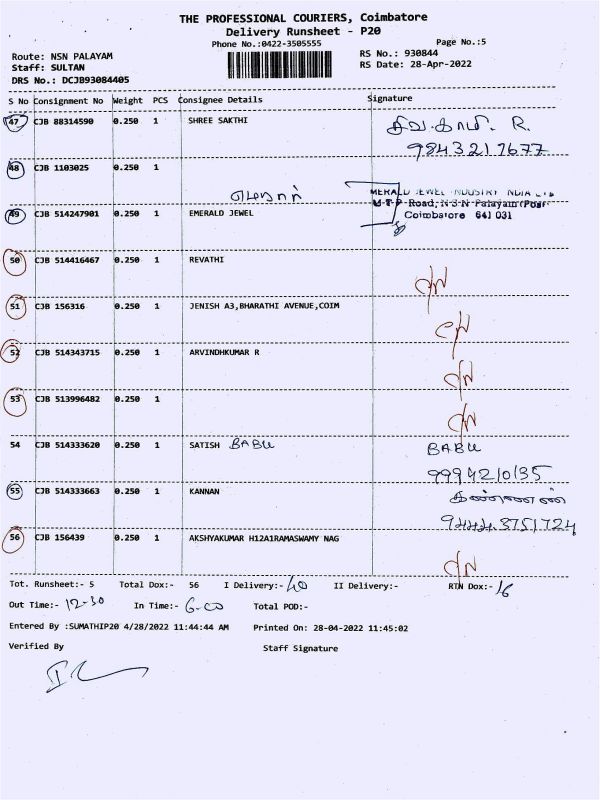 THE PROFESSIONAL COURIERS, Coimbatore
Delivery Runsheet - P20
Phone No.:0422-3505555
Page No.:5
Route: NSN PALAYAM
RS No.: 930844
Staff: SULTAN
RS Date: 28-Apr-2022
DRS No.: DCJB93084405
S No Consignment No Weight PCS Consignee Details Signature
47 CJB 88314590 0.250 1 SHREE SAKTHI சிவகாமி. R.
9843217677
48 CJB 1103025 0.250 1
EMERALD JEWEL INDUSTRY INDIA LTD
M-T-P Road, N S N Palayam (Post)
49 CJB 514247901 0.250 1 EMERALD JEWEL Coimbatore 641 031
50 CJB 514416467 0.250 1 REVATHI
51 CJB 156316 0.250 1 JENISH A3,BHARATHI AVENUE,COIM
52 CJB 514343715 0.250 1 ARVINDHKUMAR R
53 CJB 513996482 0.250 1
54 CJB 514333620 0.250 1 SATISH BABU BABU
9994210135
55 CJB 514333663 0.250 1 KANNAN கண்ணன்
94443751724
56 CJB 156439 0.250 1 AKSHYAKUMAR H12A1RAMASWAMY NAG
Tot. Runsheet:- 5 Total Dox:- 56 I Delivery:- 40 II Delivery:- RTN Dox:- 16
Out Time:- 12-30 In Time:- 6-00 Total POD:-
Entered By :SUMATHIP20 4/28/2022 11:44:44 AM Printed On: 28-04-2022 11:45:02
Verified By Staff Signature